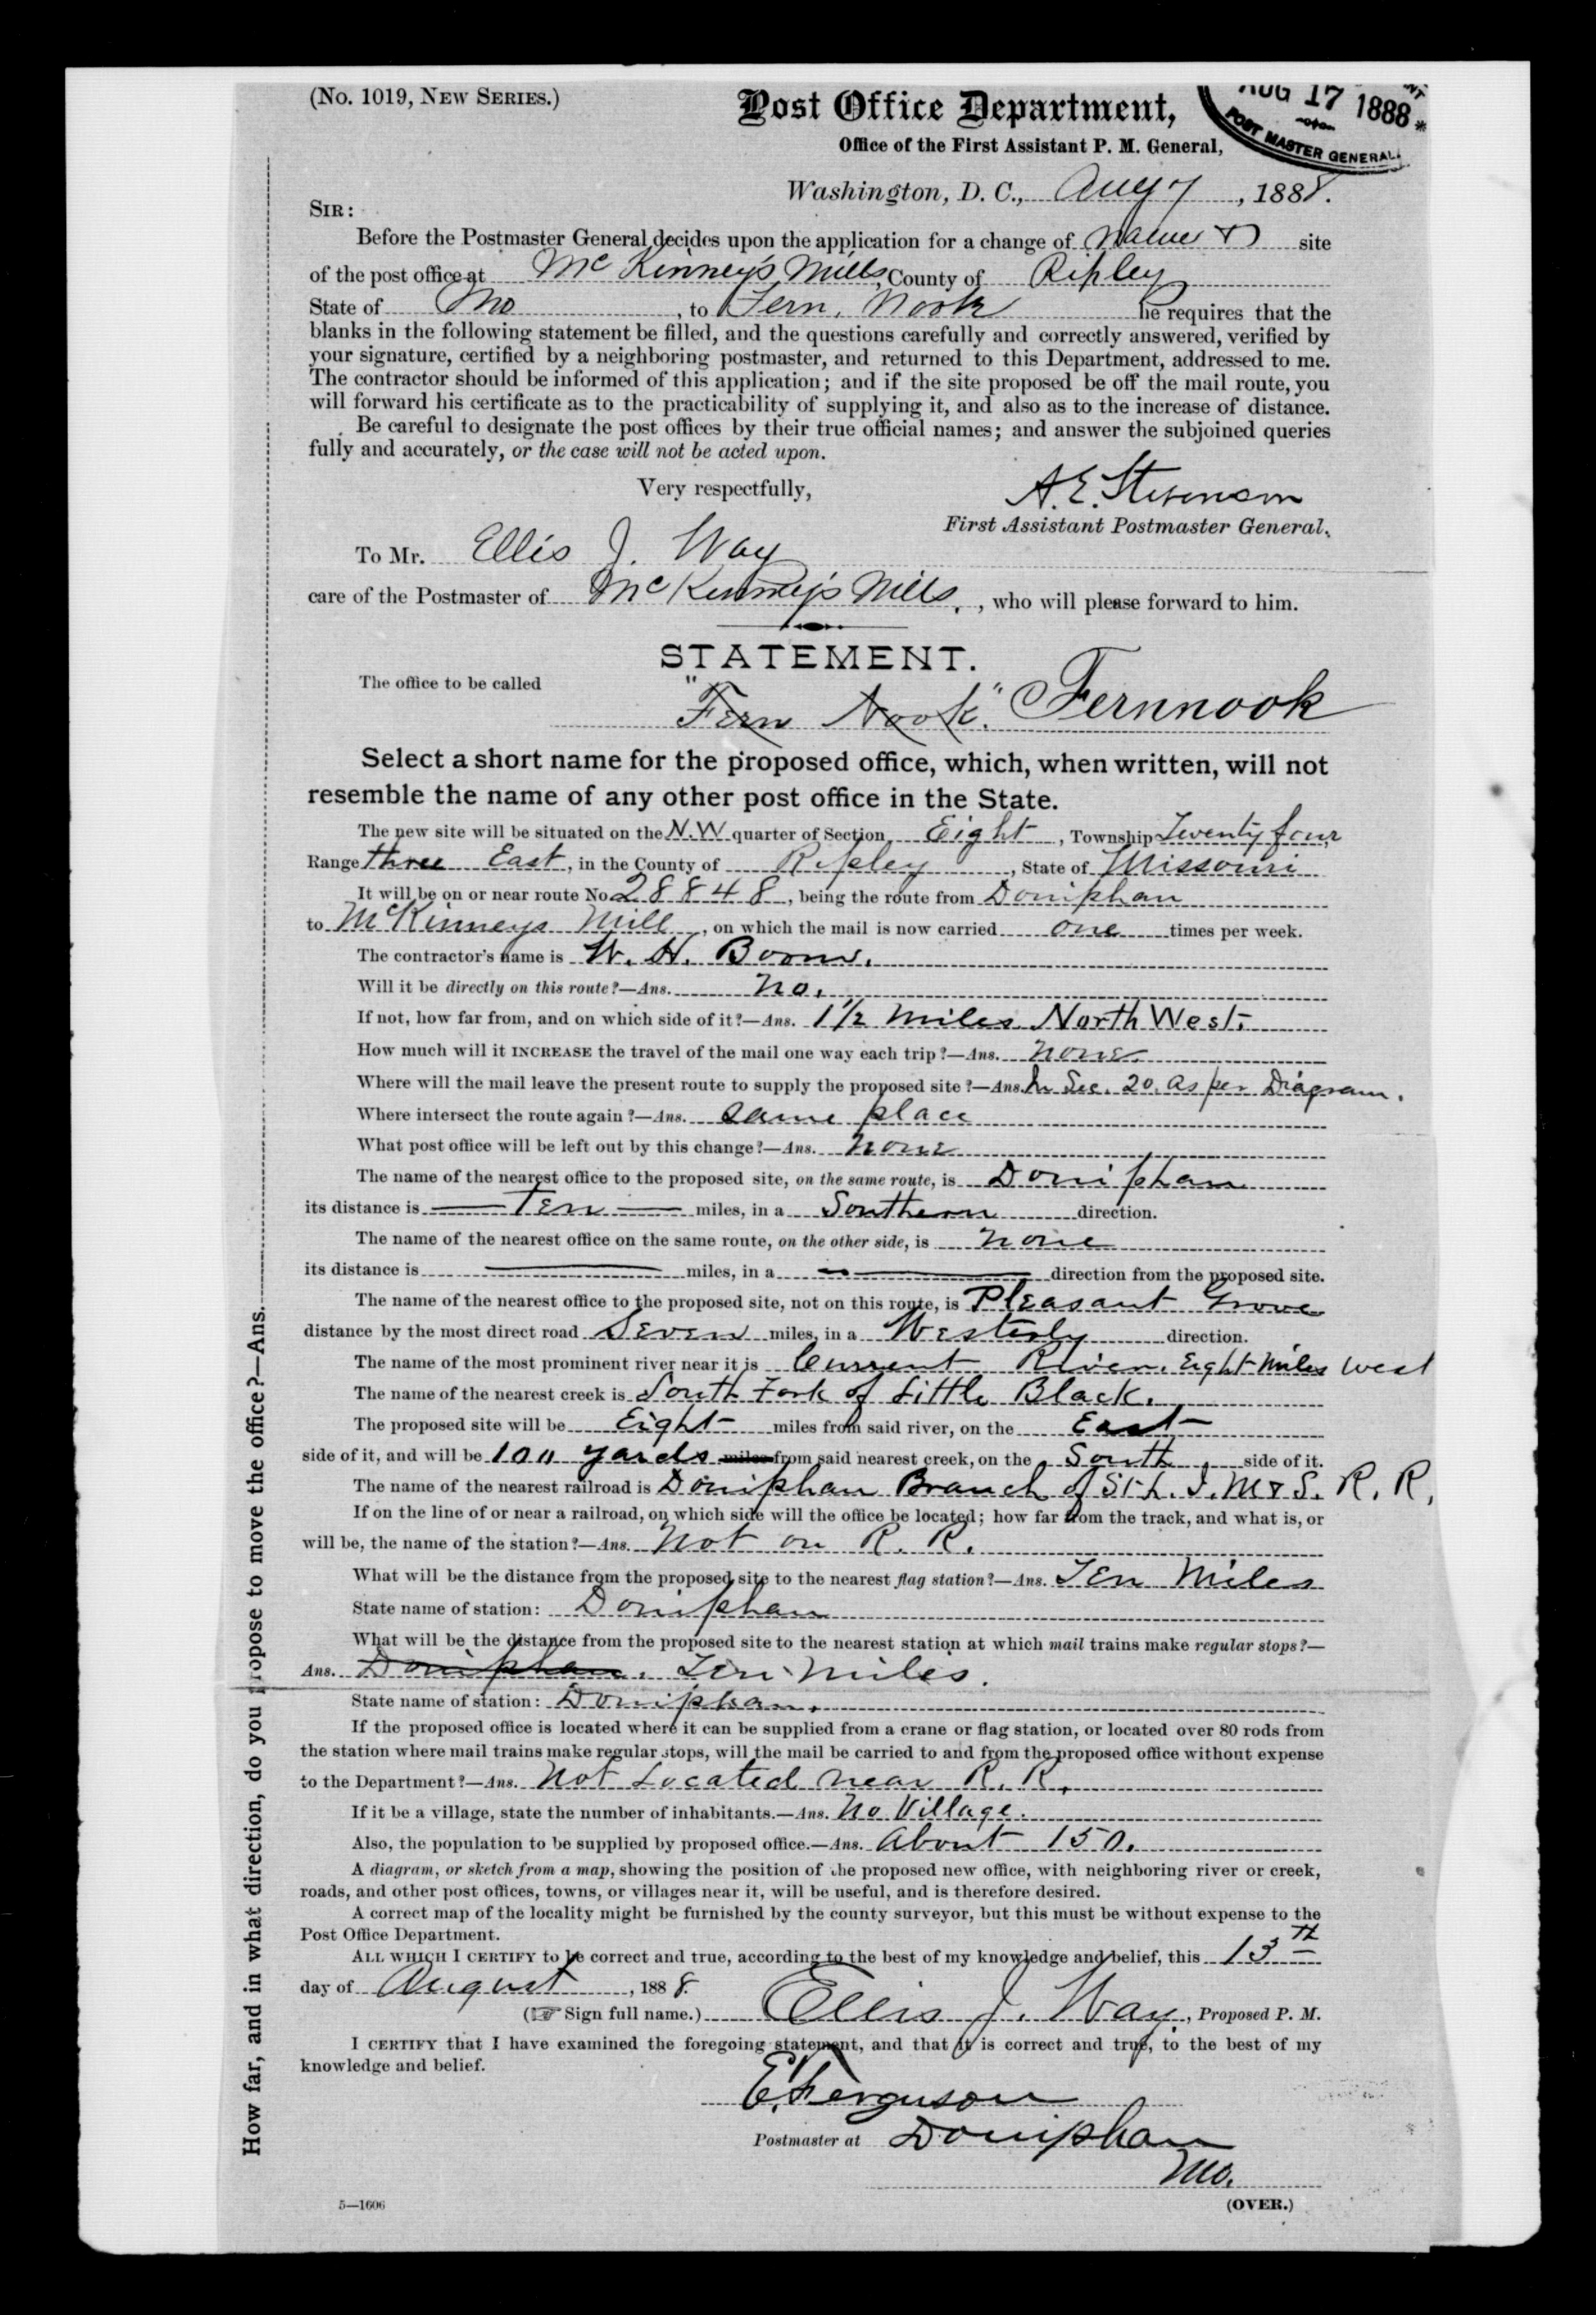 (No. 1019, NEW SERIES.)
Post Office Department,
AUG 17 1888
POST MASTER GENERAL.
Office of the First Assistant P. M. General,
Washington, D. C., Aug 7, 1888.
SIR:
Before the Postmaster General decides upon the application for a change of Name & site
of the post office at McKinney's Mills, County of Ripley
State of Mo, to Fern Nook he requires that the
blanks in the following statement be filled, and the questions carefully and correctly answered, verified by
your signature, certified by a neighboring postmaster, and returned to this Department, addressed to me.
The contractor should be informed of this application; and if the site proposed be off the mail route, you
will forward his certificate as to the practicability of supplying it, and also as to the increase of distance.
Be careful to designate the post offices by their true official names; and answer the subjoined queries
fully and accurately, or the case will not be acted upon.
Very respectfully,
A. E. Stevenson
First Assistant Postmaster General.
To Mr. Ellis J. Way
care of the Postmaster of McKinney's Mills, who will please forward to him.
STATEMENT.
The office to be called
"Fern Nook". Fernnook
Select a short name for the proposed office, which, when written, will not
resemble the name of any other post office in the State.
The new site will be situated on the N.W quarter of Section Eight, Township Twenty four
Range three East, in the County of Ripley, State of Missouri
It will be on or near route No 28848, being the route from Doniphan
to McKinneys Mill, on which the mail is now carried one times per week.
The contractor's name is W. H. Boone.
Will it be directly on this route?—Ans. No.
If not, how far from, and on which side of it?—Ans. 1 1/2 miles North West.
How much will it INCREASE the travel of the mail one way each trip?—Ans. None
Where will the mail leave the present route to supply the proposed site?—Ans. In Sec. 20. As per Diagram.
Where intersect the route again?—Ans. Same place
What post office will be left out by this change?—Ans. None
The name of the nearest office to the proposed site, on the same route, is Doniphan
its distance is Ten miles, in a Southern direction.
The name of the nearest office on the same route, on the other side, is none
its distance is miles, in a direction from the proposed site.
The name of the nearest office to the proposed site, not on this route, is Pleasant Grove
distance by the most direct road Seven miles, in a Westerly direction.
The name of the most prominent river near it is Current River. Eight Miles West
The name of the nearest creek is South Fork of Little Black.
The proposed site will be Eight miles from said river, on the East
side of it, and will be 100 yards miles from said nearest creek, on the South side of it.
The name of the nearest railroad is Doniphan Branch of St. L. I. M & S. R. R.
If on the line of or near a railroad, on which side will the office be located; how far from the track, and what is, or
will be, the name of the station?—Ans. Not on R. R.
What will be the distance from the proposed site to the nearest flag station?—Ans. Ten Miles
State name of station: Doniphan
What will be the distance from the proposed site to the nearest station at which mail trains make regular stops?—
Ans. Doniphan. Ten Miles.
State name of station: Doniphan.
If the proposed office is located where it can be supplied from a crane or flag station, or located over 80 rods from
the station where mail trains make regular stops, will the mail be carried to and from the proposed office without expense
to the Department?—Ans. Not Located near R. R.
If it be a village, state the number of inhabitants.—Ans. No Village.
Also, the population to be supplied by proposed office.—Ans. About 150.
A diagram, or sketch from a map, showing the position of the proposed new office, with neighboring river or creek,
roads, and other post offices, towns, or villages near it, will be useful, and is therefore desired.
A correct map of the locality might be furnished by the county surveyor, but this must be without expense to the
Post Office Department.
ALL WHICH I CERTIFY to be correct and true, according to the best of my knowledge and belief, this 13th
day of August, 1888.
(☞ Sign full name.) Ellis J. Way, Proposed P. M.
I CERTIFY that I have examined the foregoing statement, and that it is correct and true, to the best of my
knowledge and belief.
E. Ferguson
Postmaster at Doniphan
Mo.
5—1606
(OVER.)
How far, and in what direction, do you propose to move the office?—Ans.